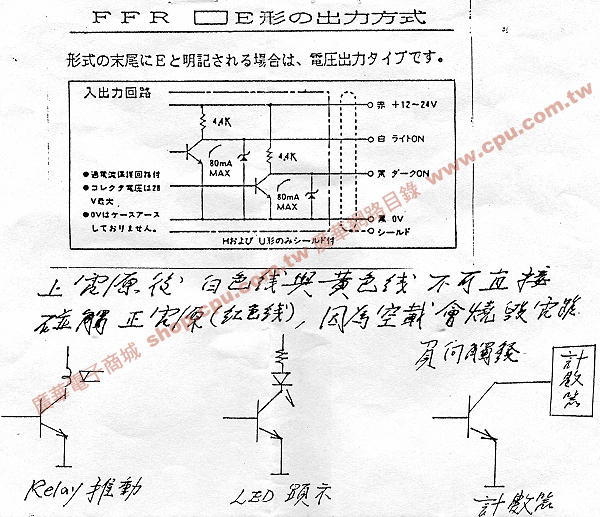 FFR □E形の出力方式
形式の末尾にEと明記される場合は、電圧出力タイプです。
入出力回路
赤 +12~24V
4.4K
白 ライトON
4.4K
80mA
MAX
黄 ダークON
●過電流保護回路付
●コレクタ電圧は28
V最大
80mA
MAX
●0Vはケースアース
しておりません。
黒 0V
シールド
Hおよび U形のみシールド付
上電源後 白色线與黃色线 不可直接
碰觸正電源(紅色线), 因為空載會燒毀電路
負向觸發
計數器
Relay 推動
LED 顯示
計數器
廣華電子商城 shop.cpu.com.tw 廣華網路目錄 www.cpu.com.tw